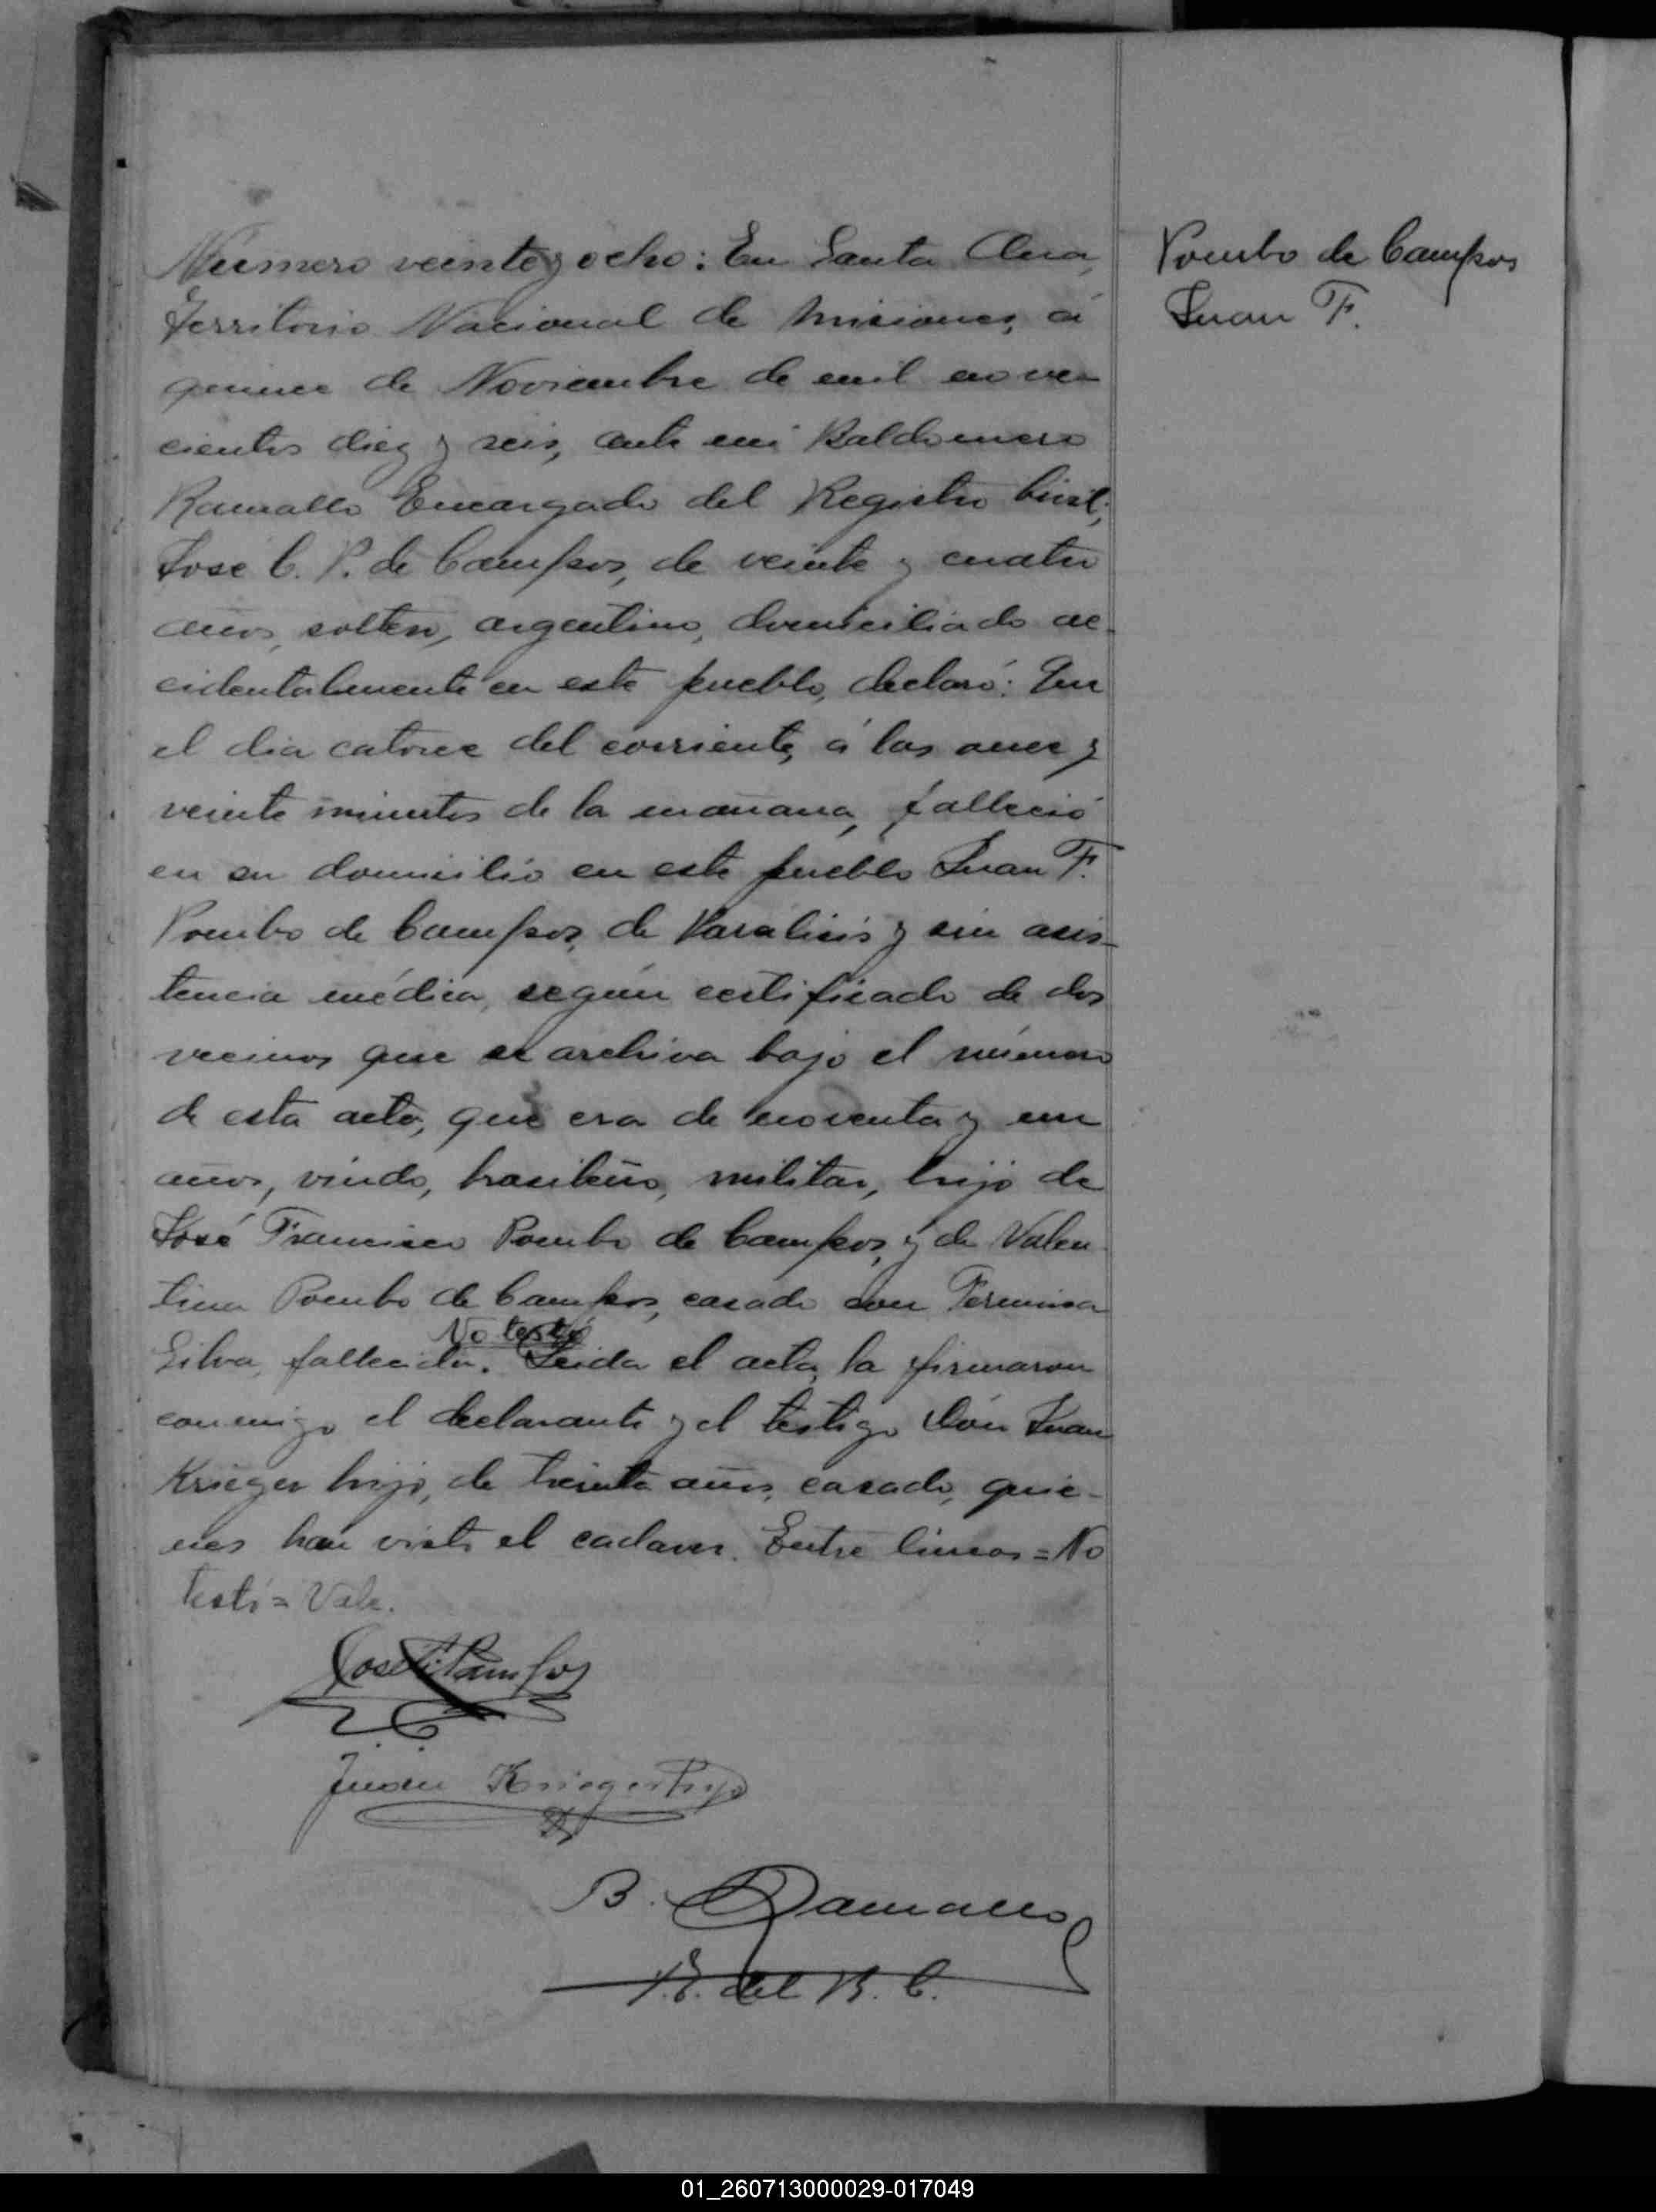 Número veinte y ocho: En Santa Ana,
Territorio Nacional de Misiones, á
quince de Noviembre de mil nove-
cientos diez y seis, ante mi Baldomero
Ramallo Encargado del Registro Civil;
José C. P. de Campos, de veinte y cuatro
años, soltero, argentino, domiciliado ac-
cidentalmente en este pueblo, declaró: Que
el dia catorce del corriente, á las once y
veinte minutos de la mañana, falleció
en su domicilio en este pueblo Juan F.
Pombo de Campos, de Paralisis y sin asis-
tencia médica, según certificado de dos
vecinos que se archiva bajo el número
de esta acta, que era de noventa y un
años, viudo, brasileño, militar, hijo de
José Francisco Pombo de Campos, y de Valen-
tina Pombo de Campos, casado con
No testó
Silva, fallecida. Leida el acta, la firmaron
conmigo el declarante y el testigo Don Juan
Krieger hijo, de treinta años, casado, quie-
nes han visto el cadaver. Entre lineas = No
testó = Vale.
Pombo de Campos
Juan F.
José Campos
Juan Krieger hijo
B. Ramallo
E. del R. C.
01_260713000029-017049